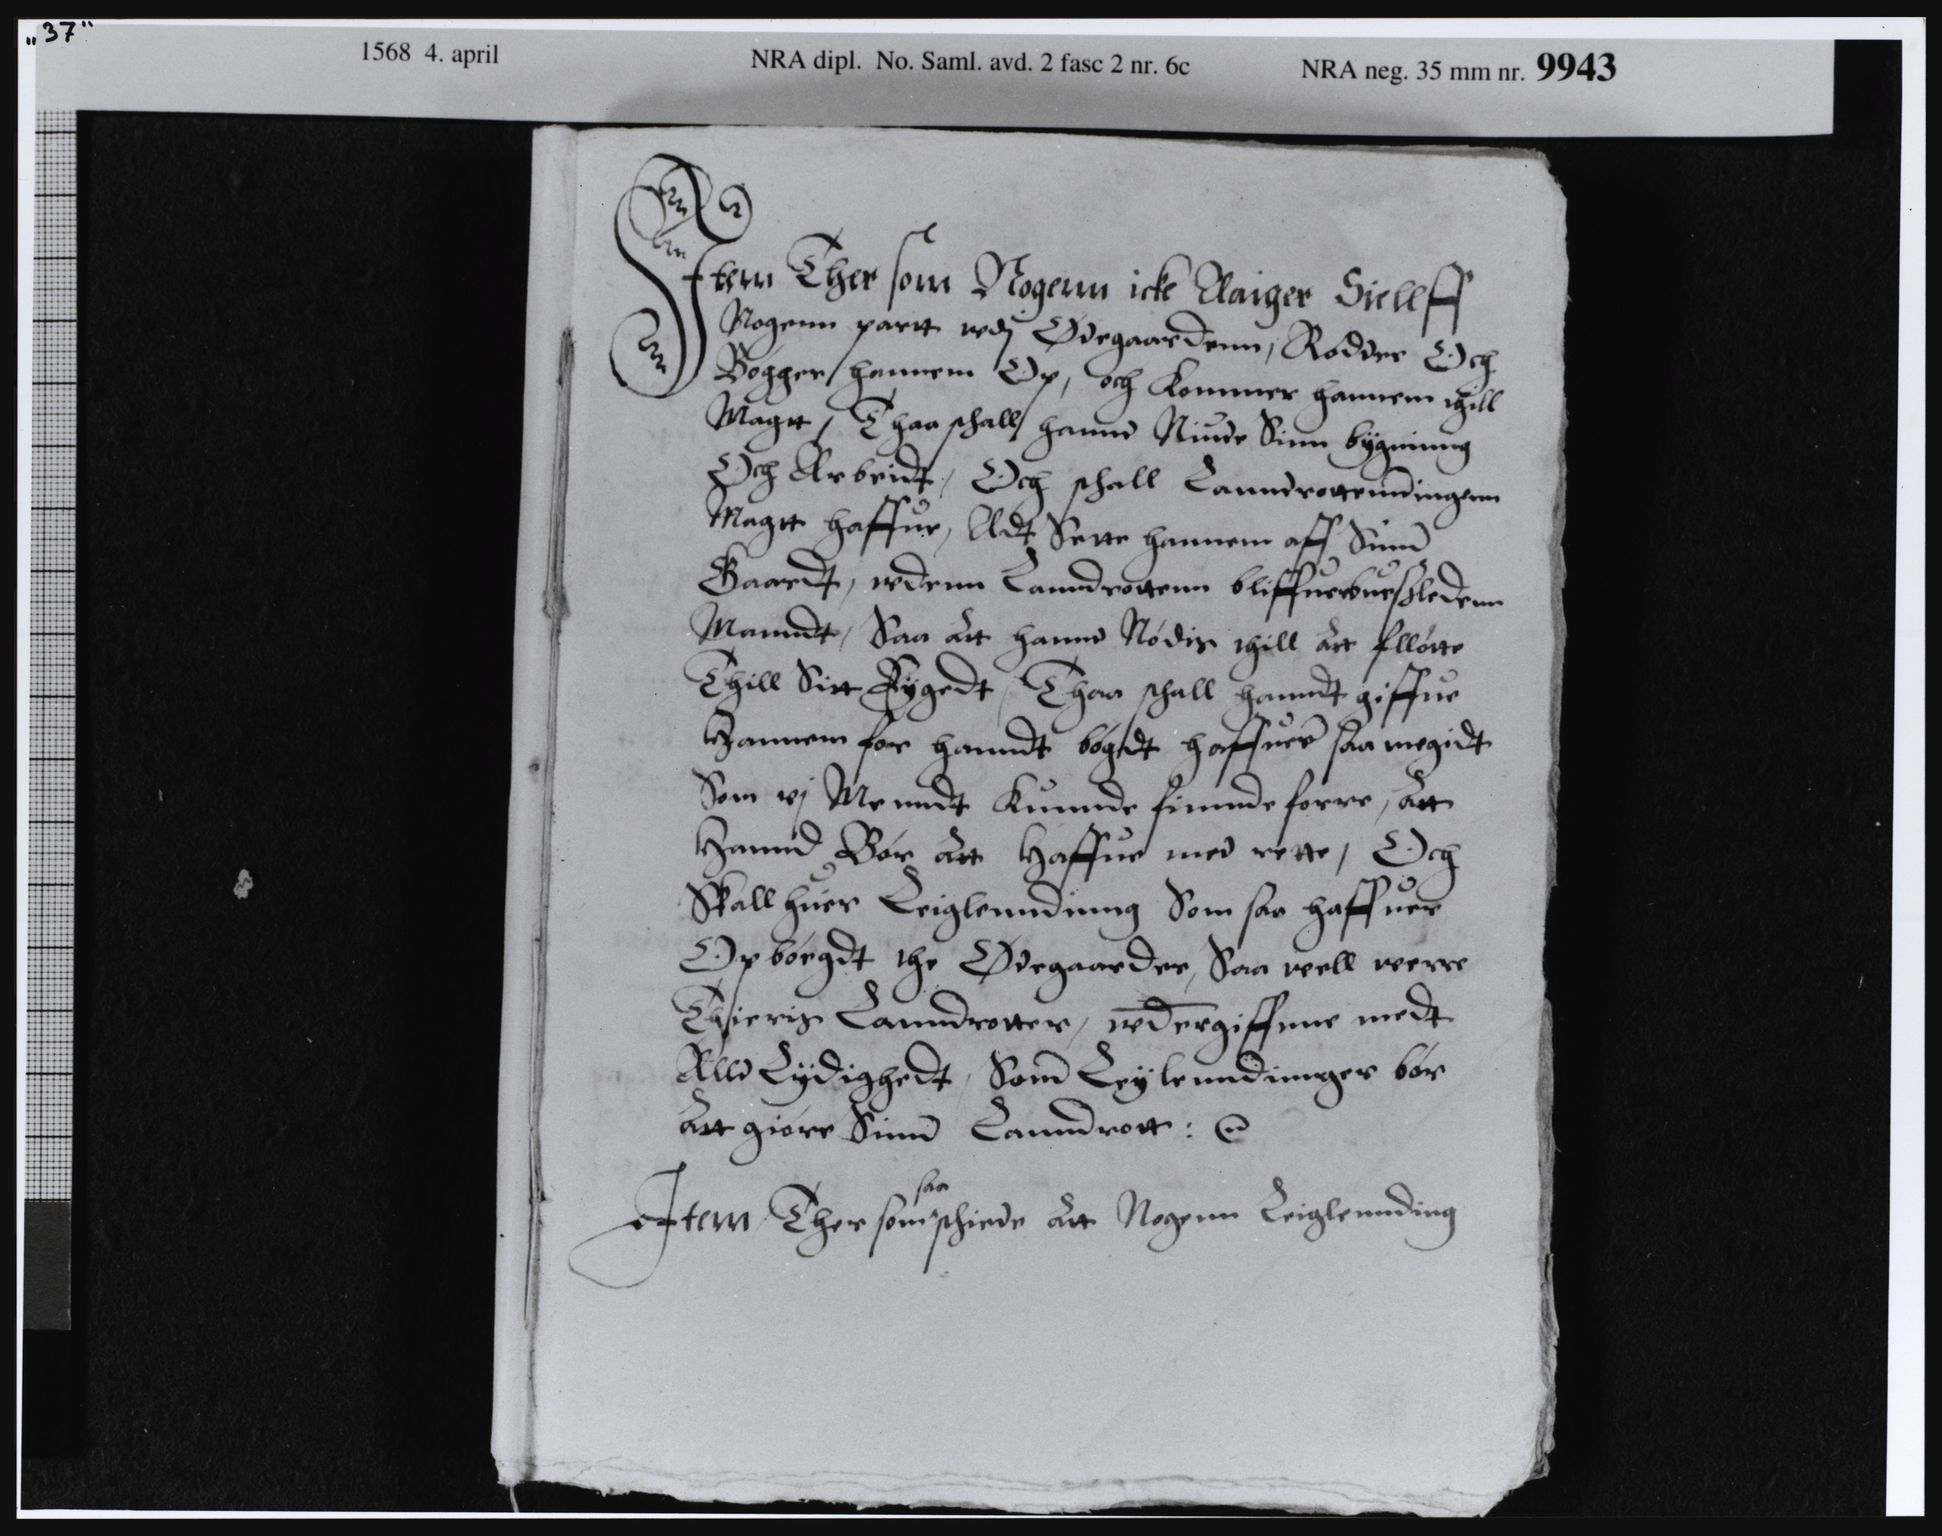 "37"
1568 4. april
NRA dipl. No. Saml. avd. 2 fasc 2 nr. 6c
NRA neg. 35 mm nr. 9943
Jtem Ther som Nogenn icke Aaiger Sielff
Nogenn partt wdj Ødegaardenn, Rødder Och
Bøgger hannem Op, och Kommer hannem thill
Magtt, Thaa schall hannd Niude Sinn bÿgninng
Och Arbeidt, Och schall Lanndrottenndingenn
Magtt haffue, Adt Sette hannem aff Sinnd
Gaardt, wdenn Lanndrottenn bliffuer
Manndt, Saa att hannd Nødis thill att fllótte
Thill Sitt Bÿgedt, Thaa schall hanndt giffue
Hannem for hanndt bógdt haffuer saa megidt
Som vj Menndt Kunnde finnde forre, att
Hannd Bór att Haffue med rette, Och
Skall huer Leiglenndinng Som saa haffuer
Opbórgdt the Ødegaarder, Saa well werre
Thieris Lanndrotter, wndergiffnne medt
Alld Lÿdighedt, Somd Leÿlenndinnger bór
Att gióre Sinnd Lanndrott:
Jtem Ther som saa schiede att Nogenn Leiglennding